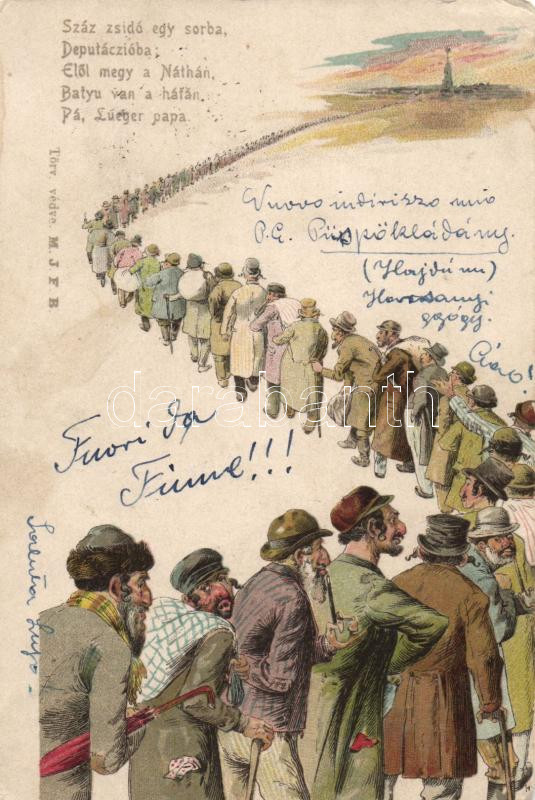 Száz zsidó egy sorba,
Deputáczióba;
Elől megy a Náthán,
Batyu van a hátán.
Pá, Lueger papa.
Törv. védve M. J. F. B
Nuovo indirizzo mio
P. G. Püspökladány.
(Hajdú m)
Ciao!
darabanth
Fuori da
Fiume!!!